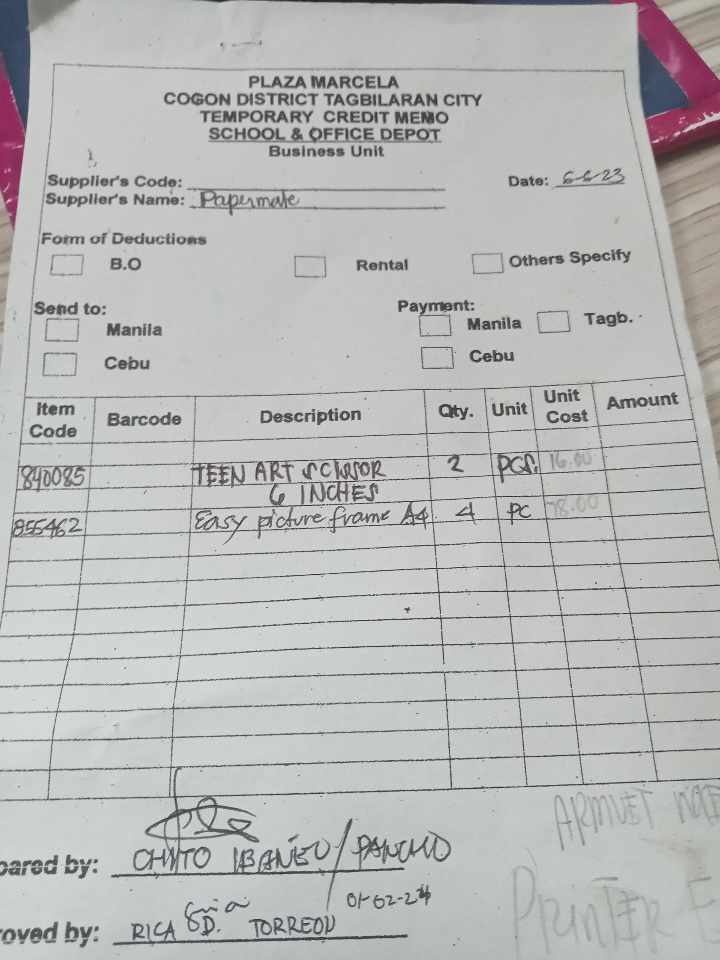 PLAZA MARCELA
COGON DISTRICT TAGBILARAN CITY
TEMPORARY CREDIT MEMO
SCHOOL & OFFICE DEPOT
Business Unit
Supplier's Code: Date: 6-6-23
Supplier's Name: Papermate
Form of Deductions
B.O Rental Others Specify
Send to: Payment:
Manila Manila Tagb.
Cebu Cebu
Item Code Barcode Description Qty. Unit Unit Cost Amount
840085 TEEN ART scissor 2 pcs. 16.00
6 INCHES
855462 Easy picture frame A4 4 pc 78.00
pared by: CHITO PANCHO
01-02-24
roved by: RICA D. TORREON
PRINTER